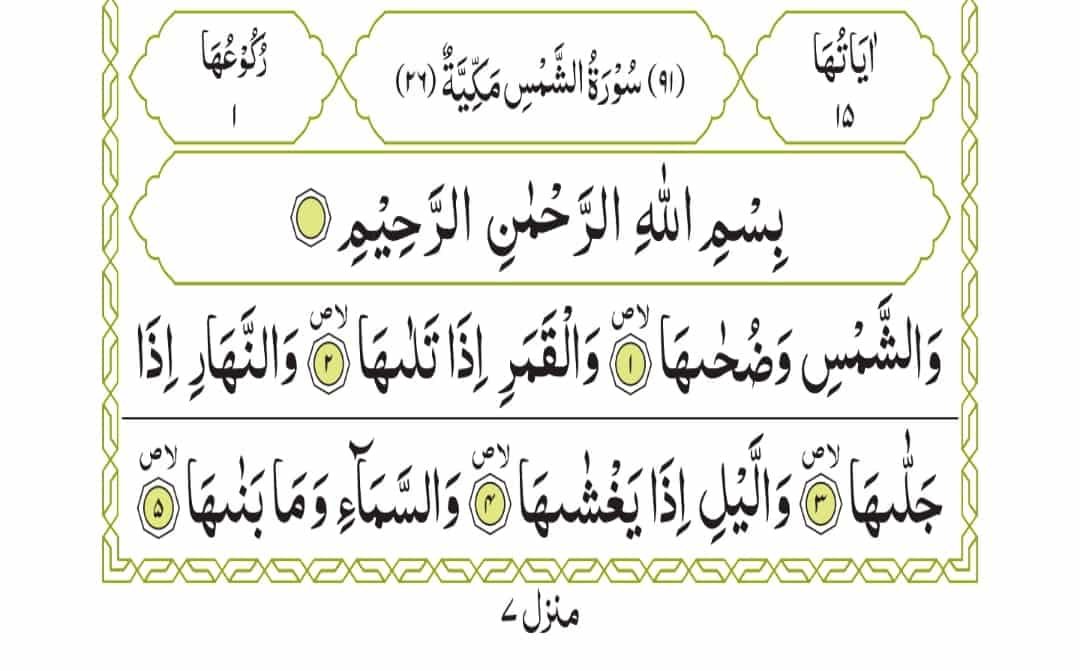 اٰيَاتُهَا ١٥ (٩١) سُوْرَةُ الشَّمْسِ مَكِّيَّةٌ (٢٦) رُكُوْعُهَا ١
بِسْمِ اللّٰهِ الرَّحْمٰنِ الرَّحِيْمِ
وَالشَّمْسِ وَضُحٰىهَا ۪ۙ ١ وَالْقَمَرِ اِذَا تَلٰىهَا ۪ۙ ٢ وَالنَّهَارِ اِذَا
جَلّٰىهَا ۪ۙ ٣ وَالَّيْلِ اِذَا يَغْشٰىهَا ۪ۙ ٤ وَالسَّمَآءِ وَمَا بَنٰىهَا ۪ۙ ٥
منزل ٧